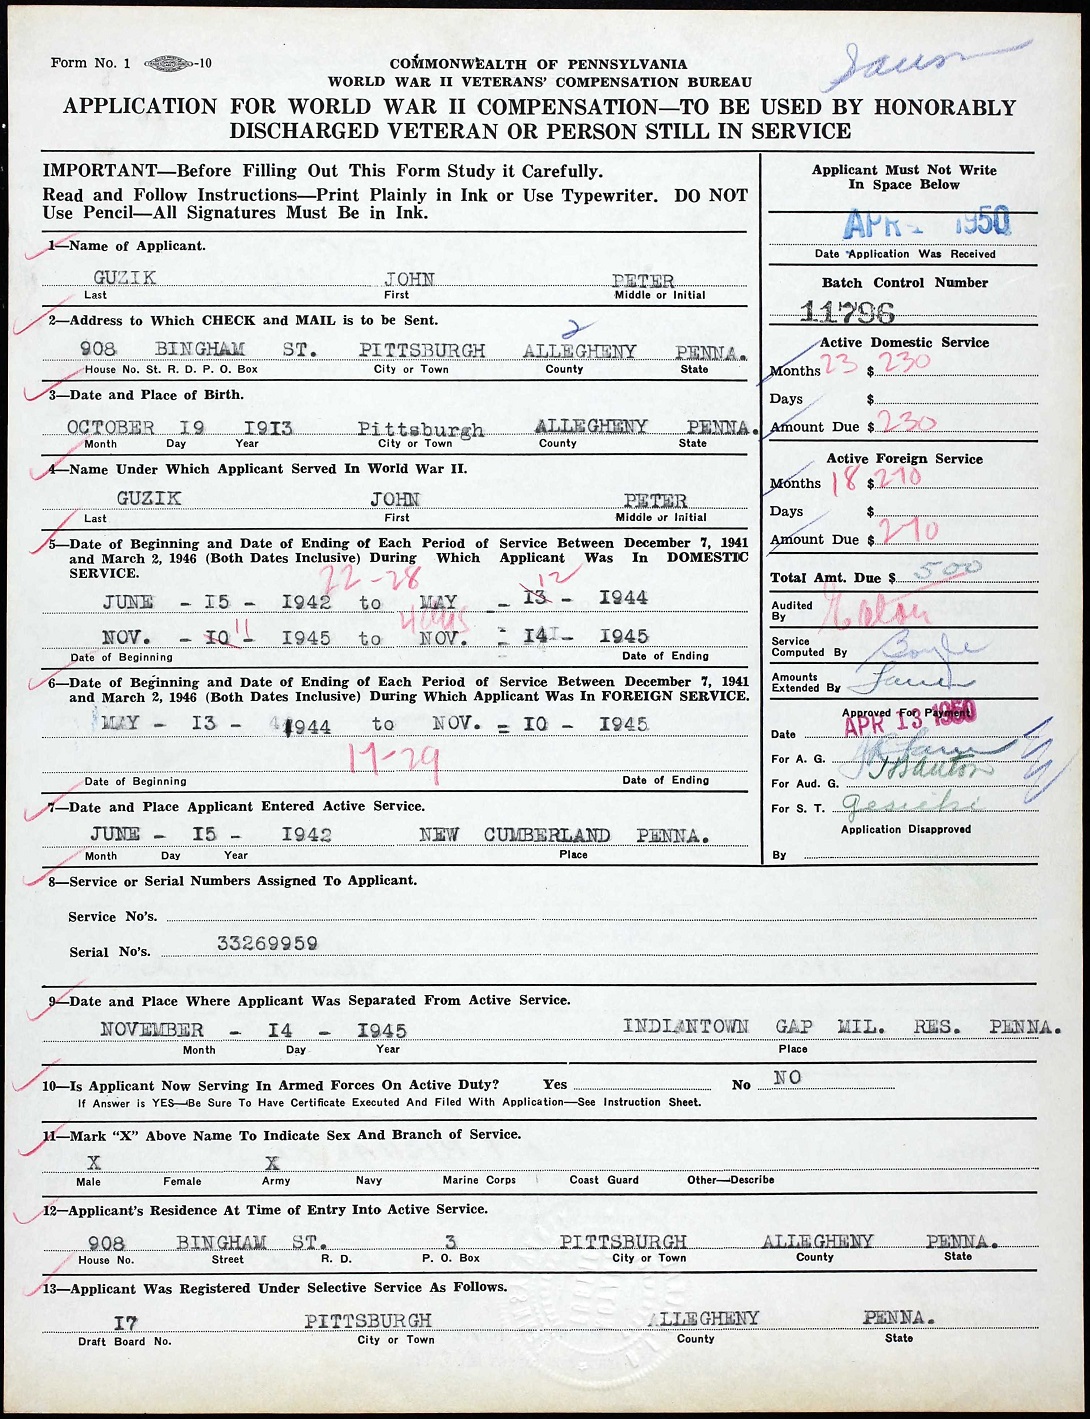 Form No. 1 -10
COMMONWEALTH OF PENNSYLVANIA
WORLD WAR II VETERANS' COMPENSATION BUREAU
APPLICATION FOR WORLD WAR II COMPENSATION—TO BE USED BY HONORABLY
DISCHARGED VETERAN OR PERSON STILL IN SERVICE
IMPORTANT—Before Filling Out This Form Study it Carefully.
Read and Follow Instructions—Print Plainly in Ink or Use Typewriter. DO NOT
Use Pencil—All Signatures Must Be in Ink.
1—Name of Applicant.
GUZIK JOHN PETER
Last First Middle or Initial
2—Address to Which CHECK and MAIL is to be Sent.
2
908 BINGHAM ST. PITTSBURGH ALLEGHENY PENNA.
House No. St. R. D. P. O. Box City or Town County State
3—Date and Place of Birth.
OCTOBER 19 1913 Pittsburgh ALLEGHENY PENNA.
Month Day Year City or Town County State
4—Name Under Which Applicant Served In World War II.
GUZIK JOHN PETER
Last First Middle or Initial
5—Date of Beginning and Date of Ending of Each Period of Service Between December 7, 1941
and March 2, 1946 (Both Dates Inclusive) During Which Applicant Was In DOMESTIC
SERVICE.
22-28 12
JUNE - 15 - 1942 to MAY - 13 - 1944
11 4 days
NOV. - 10 - 1945 to NOV. - 14 - 1945
Date of Beginning Date of Ending
6—Date of Beginning and Date of Ending of Each Period of Service Between December 7, 1941
and March 2, 1946 (Both Dates Inclusive) During Which Applicant Was In FOREIGN SERVICE.
MAY - 13 - 1944 to NOV. - 10 - 1945
17-29
Date of Beginning Date of Ending
7—Date and Place Applicant Entered Active Service.
JUNE - 15 - 1942 NEW CUMBERLAND PENNA.
Month Day Year Place
Applicant Must Not Write
In Space Below
APR 1950
Date Application Was Received
Batch Control Number
11796
Active Domestic Service
Months 23 $ 230
Days $
Amount Due $ 230
Active Foreign Service
Months 18 $ 270
Days $
Amount Due $ 270
Total Amt. Due $ 500
Audited
By Eaton
Service
Computed By Boyle
Amounts
Extended By
Approved For Payment
Date APR 13 1950
For A. G.
For Aud. G.
For S. T.
Application Disapproved
By
8—Service or Serial Numbers Assigned To Applicant.
Service No's.
Serial No's. 33269959
9—Date and Place Where Applicant Was Separated From Active Service.
NOVEMBER - 14 - 1945 INDIANTOWN GAP MIL. RES. PENNA.
Month Day Year Place
10—Is Applicant Now Serving In Armed Forces On Active Duty? Yes No NO
If Answer is YES—Be Sure To Have Certificate Executed And Filed With Application—See Instruction Sheet.
11—Mark "X" Above Name To Indicate Sex And Branch of Service.
X X
Male Female Army Navy Marine Corps Coast Guard Other—Describe
12—Applicant's Residence At Time of Entry Into Active Service.
908 BINGHAM ST. 3 PITTSBURGH ALLEGHENY PENNA.
House No. Street R. D. P. O. Box City or Town County State
13—Applicant Was Registered Under Selective Service As Follows.
17 PITTSBURGH ALLEGHENY PENNA.
Draft Board No. City or Town County State